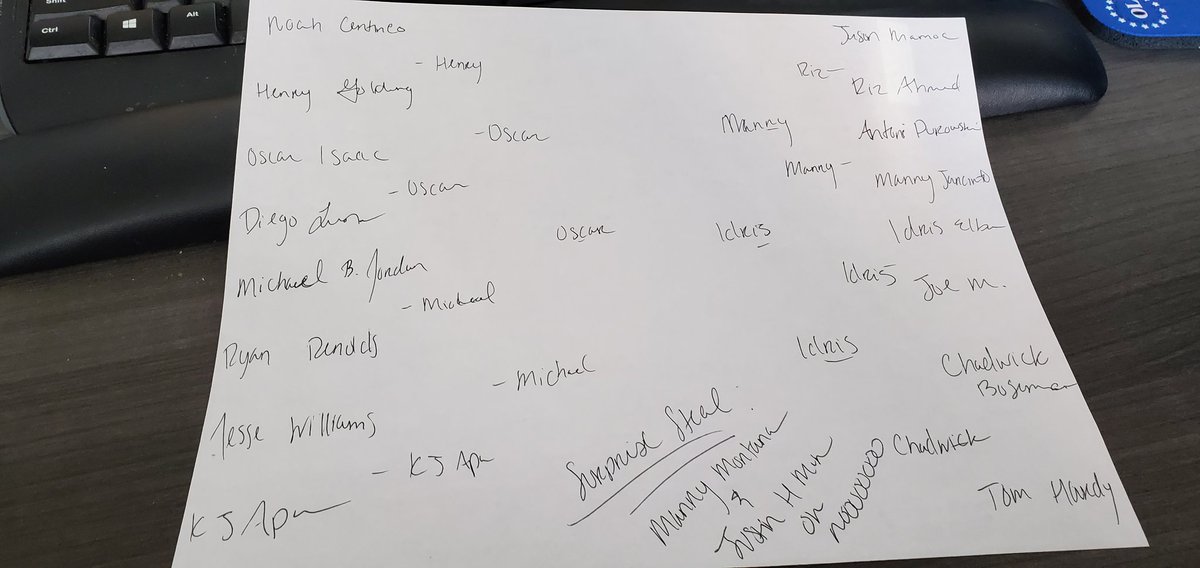 Shift
Ctrl
Alt
Noah Centneo
- Henry
Henry Golding
- Oscar
Oscar Isaac
- Oscar
Diego Luna
Oscar
Michael B. Jordan
- Michael
Ryan Renolds
- Michael
Jesse Williams
- KJ Apa
KJ Apa
Jason Mamoa
Riz -
Riz Ahmed
Manny
Antoni Porowski
Manny -
Manny Jancinto
Idris
Idris Elba
Idris
Joe M.
Idris
Chadwick
Boseman
Chadwick
Tom Hardy
Surprise Steal:
Manny Montana
&
Justin H Min
oh
noooooooo